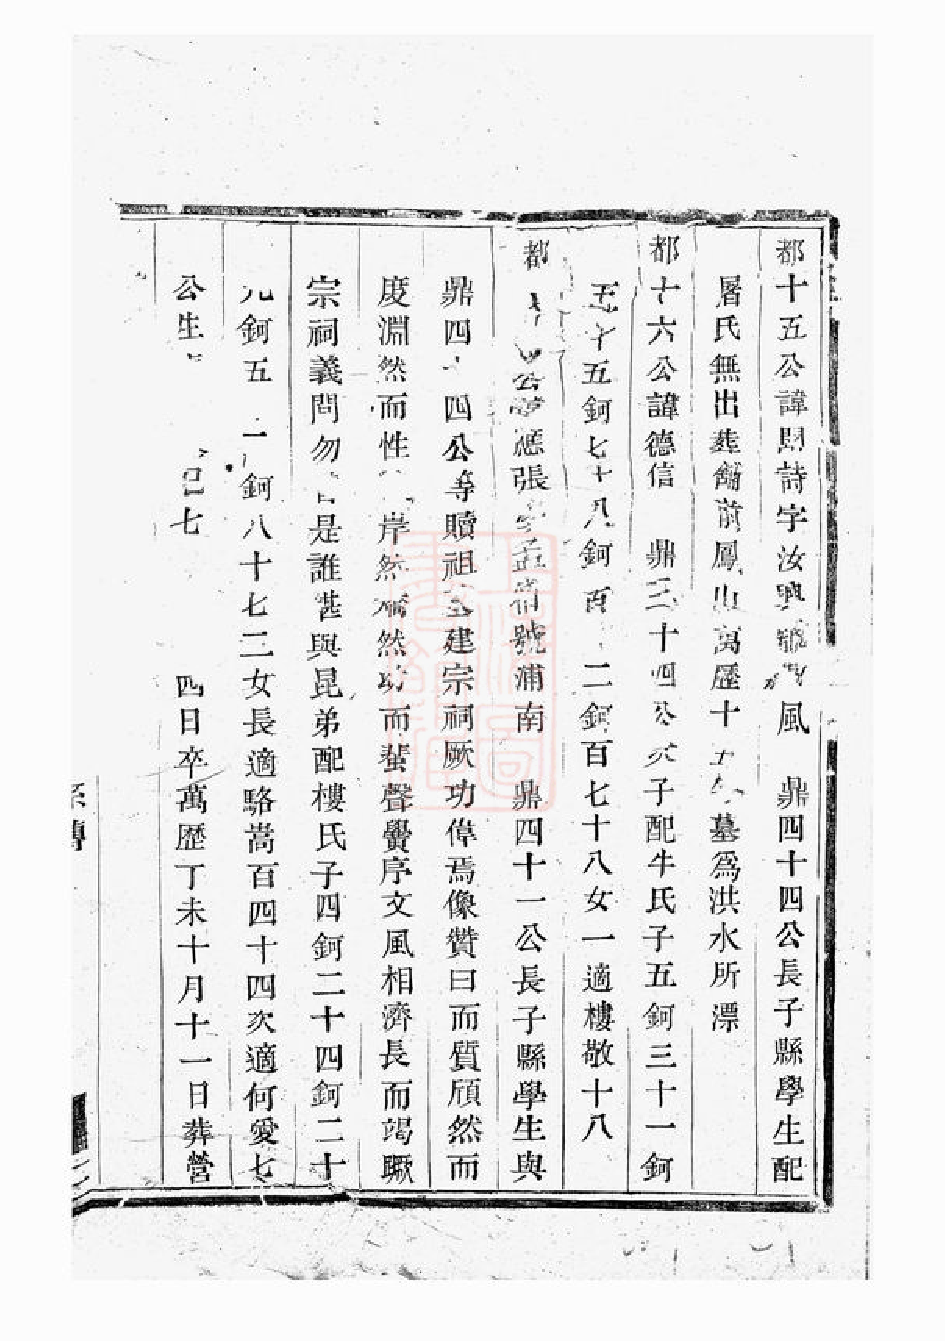 都十五公諱則詩字汝興號鳴風 鼎四十四公長子縣學生配
屠氏無出葬舖前鳳山萬歷十五年墓爲洪水所漂
都十六公諱德信 鼎三十四公次子配牛氏子五鈳三十一鈳
五十五鈳七十八鈳百 二鈳百七十八女一適樓敬十八
都十 公諱應張字孟 號浦南 鼎四十一公長子縣學生與
鼎四十四公等贖祖 建宗祠厥功偉焉像贊曰而質頎然而
度淵然而性 岸然 然功而蜚聲黌序文風相濟長而竭蹶
宗祠義問勿 是誰堪與昆弟配樓氏子四鈳二十四鈳二十
九鈳五十 鈳八十七二女長適駱嵩百四十四次適何愛七
公生 己七 四日卒萬歷丁未十月十一日葬營
系傳